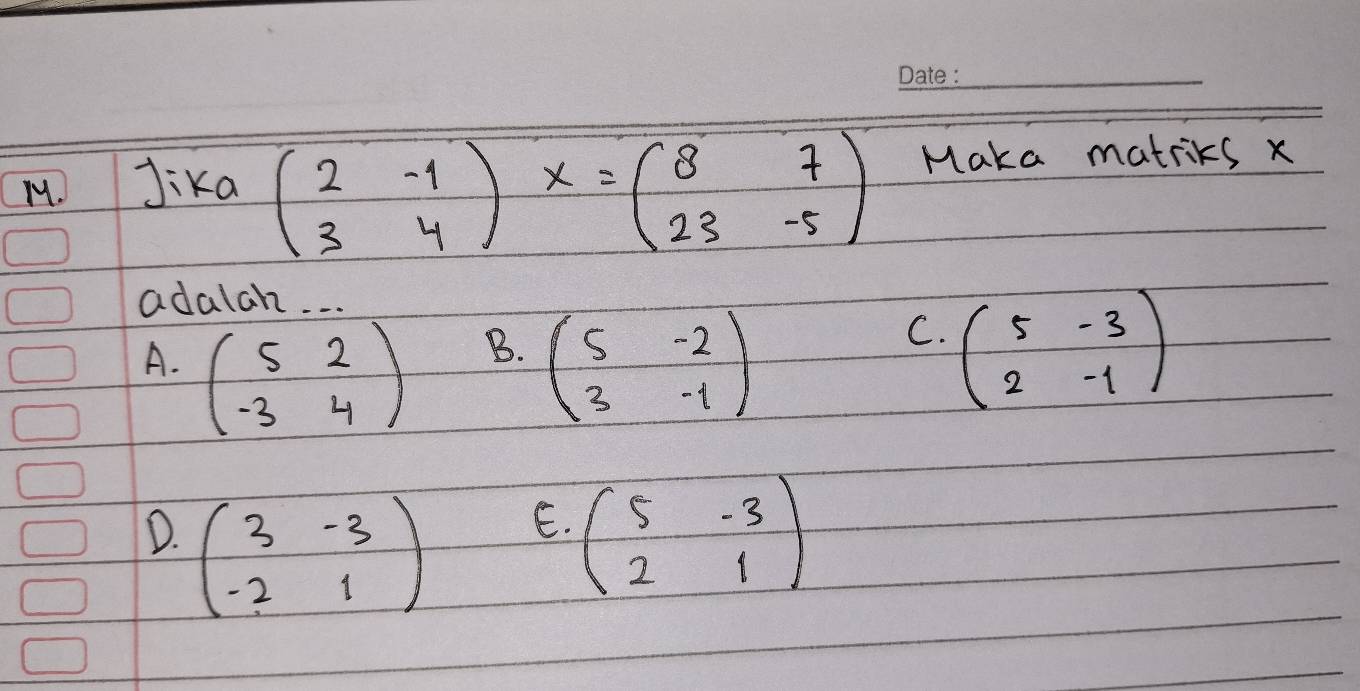 Date :
14. Jika (2 -1 / 3 4) x = (8 7 / 23 -5) Maka matriks x
adalah ...
A. (5 2 / -3 4) B. (5 -2 / 3 -1) C. (5 -3 / 2 -1)
D. (3 -3 / -2 1) E. (5 -3 / 2 1)